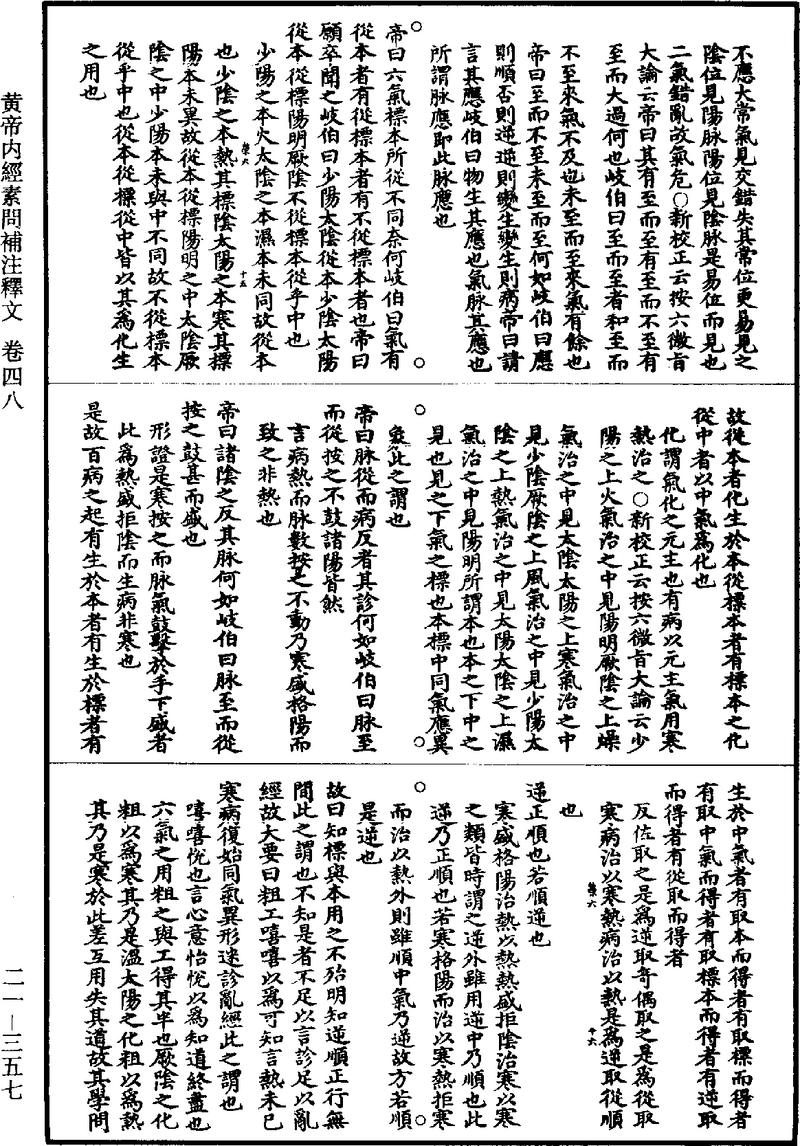 黄帝内經素問補注釋文　卷四八
二一—三五七
不應大常氣見交錯失其常位更易見之
陰位見陽脉陽位見陰脉是易位而見也
二氣錯亂故氣危○新校正云按六微旨
大論云帝曰其有至而至有至而不至有
至而大過何也岐伯曰至而至者和至而
不至來氣不及也未至而至來氣有餘也
帝曰至而不至未至而至何如岐伯曰應
則順否則逆逆則變生變生則病帝曰請
言其應岐伯曰物生其應也氣脉其應也
所謂脉應即此脉應也
帝曰六氣標本所從不同奈何岐伯曰氣有
從本者有從標本者有不從標本者也帝曰
願卒聞之岐伯曰少陽太陰從本少陰太陽
從本從標陽明厥陰不從標本從乎中也
少陽之本火太陰之本濕本末同故從本
也少陰之本熱其標陰太陽之本寒其標
陽本末異故從本從標陽明之中太陰厥
陰之中少陽本末與中不同故不從標本
從乎中也從本從標從中皆以其爲化生
之用也
故從本者化生於本從標本者有標本之化
從中者以中氣爲化也
化謂氣化之元主也有病以元主氣用寒
熱治之○新校正云按六微旨大論云少
陽之上火氣治之中見陽明厥陰之上燥
氣治之中見太陰太陽之上寒氣治之中
見少陰厥陰之上風氣治之中見少陽太
陰之上熱氣治之中見太陽太陰之上濕
氣治之中見陽明所謂本也本之下中之
見也見之下氣之標也本標中同氣應異
象此之謂也
帝曰脉從而病反者其診何如岐伯曰脉至
而從按之不鼓諸陽皆然
言病熱而脉數按之不動乃寒盛格陽而
致之非熱也
帝曰諸陰之反其脉何如岐伯曰脉至而從
按之鼓甚而盛也
形證是寒按之而脉氣鼓擊於手下盛者
此爲熱盛拒陰而生病非寒也
是故百病之起有生於本者有生於標者有
生於中氣者有取本而得者有取標而得者
有取中氣而得者有取標本而得者有逆取
而得者有從取而得者
反佐取之是爲逆取奇偶取之是爲從取
寒病治以寒熱病治以熱是爲逆取從順
也
逆正順也若順逆也
寒盛格陽治熱以熱熱盛拒陰治寒以寒
之類皆時謂之逆外雖用逆中乃順也此
逆乃正順也若寒格陽而治以寒熱拒寒
而治以熱外則雖順中氣乃逆故方若順
是逆也
故曰知標與本用之不殆明知逆順正行無
間此之謂也不知是者不足以言診足以亂
經故大要曰粗工嘻嘻以爲可知言熱未已
寒病復始同氣異形迷診亂經此之謂也
嘻嘻悅也言心意怡悅以爲知道終盡也
六氣之用粗之與工得其半也厥陰之化
粗以爲寒其乃是溫太陽之化粗以爲熱
其乃是寒於此差互用失其道故其學問